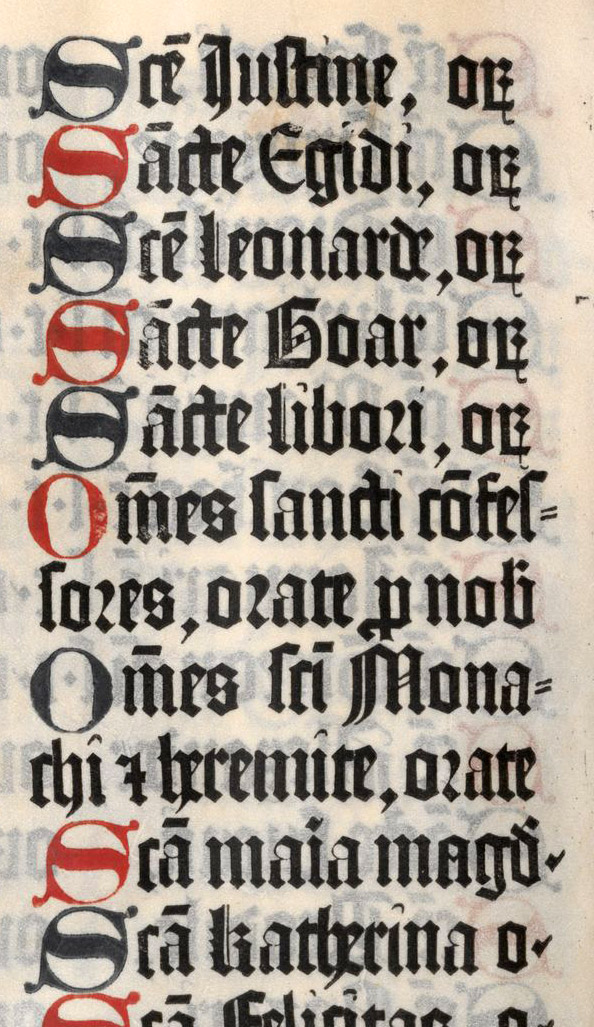 Scē Iustine, oꝝ
Sācte Egidi, oꝝ
Scē leonarde, oꝝ
Sācte Goar, oꝝ
Sācte libori, oꝝ
Om̄es sancti cōfes⸗
sores, orate ꝓ nob̄
Om̄es scī Mona⸗
chi ⁊ heremite, orate
Scā maia magd̄.
Scā katherina o.
Scā Felicitas o.